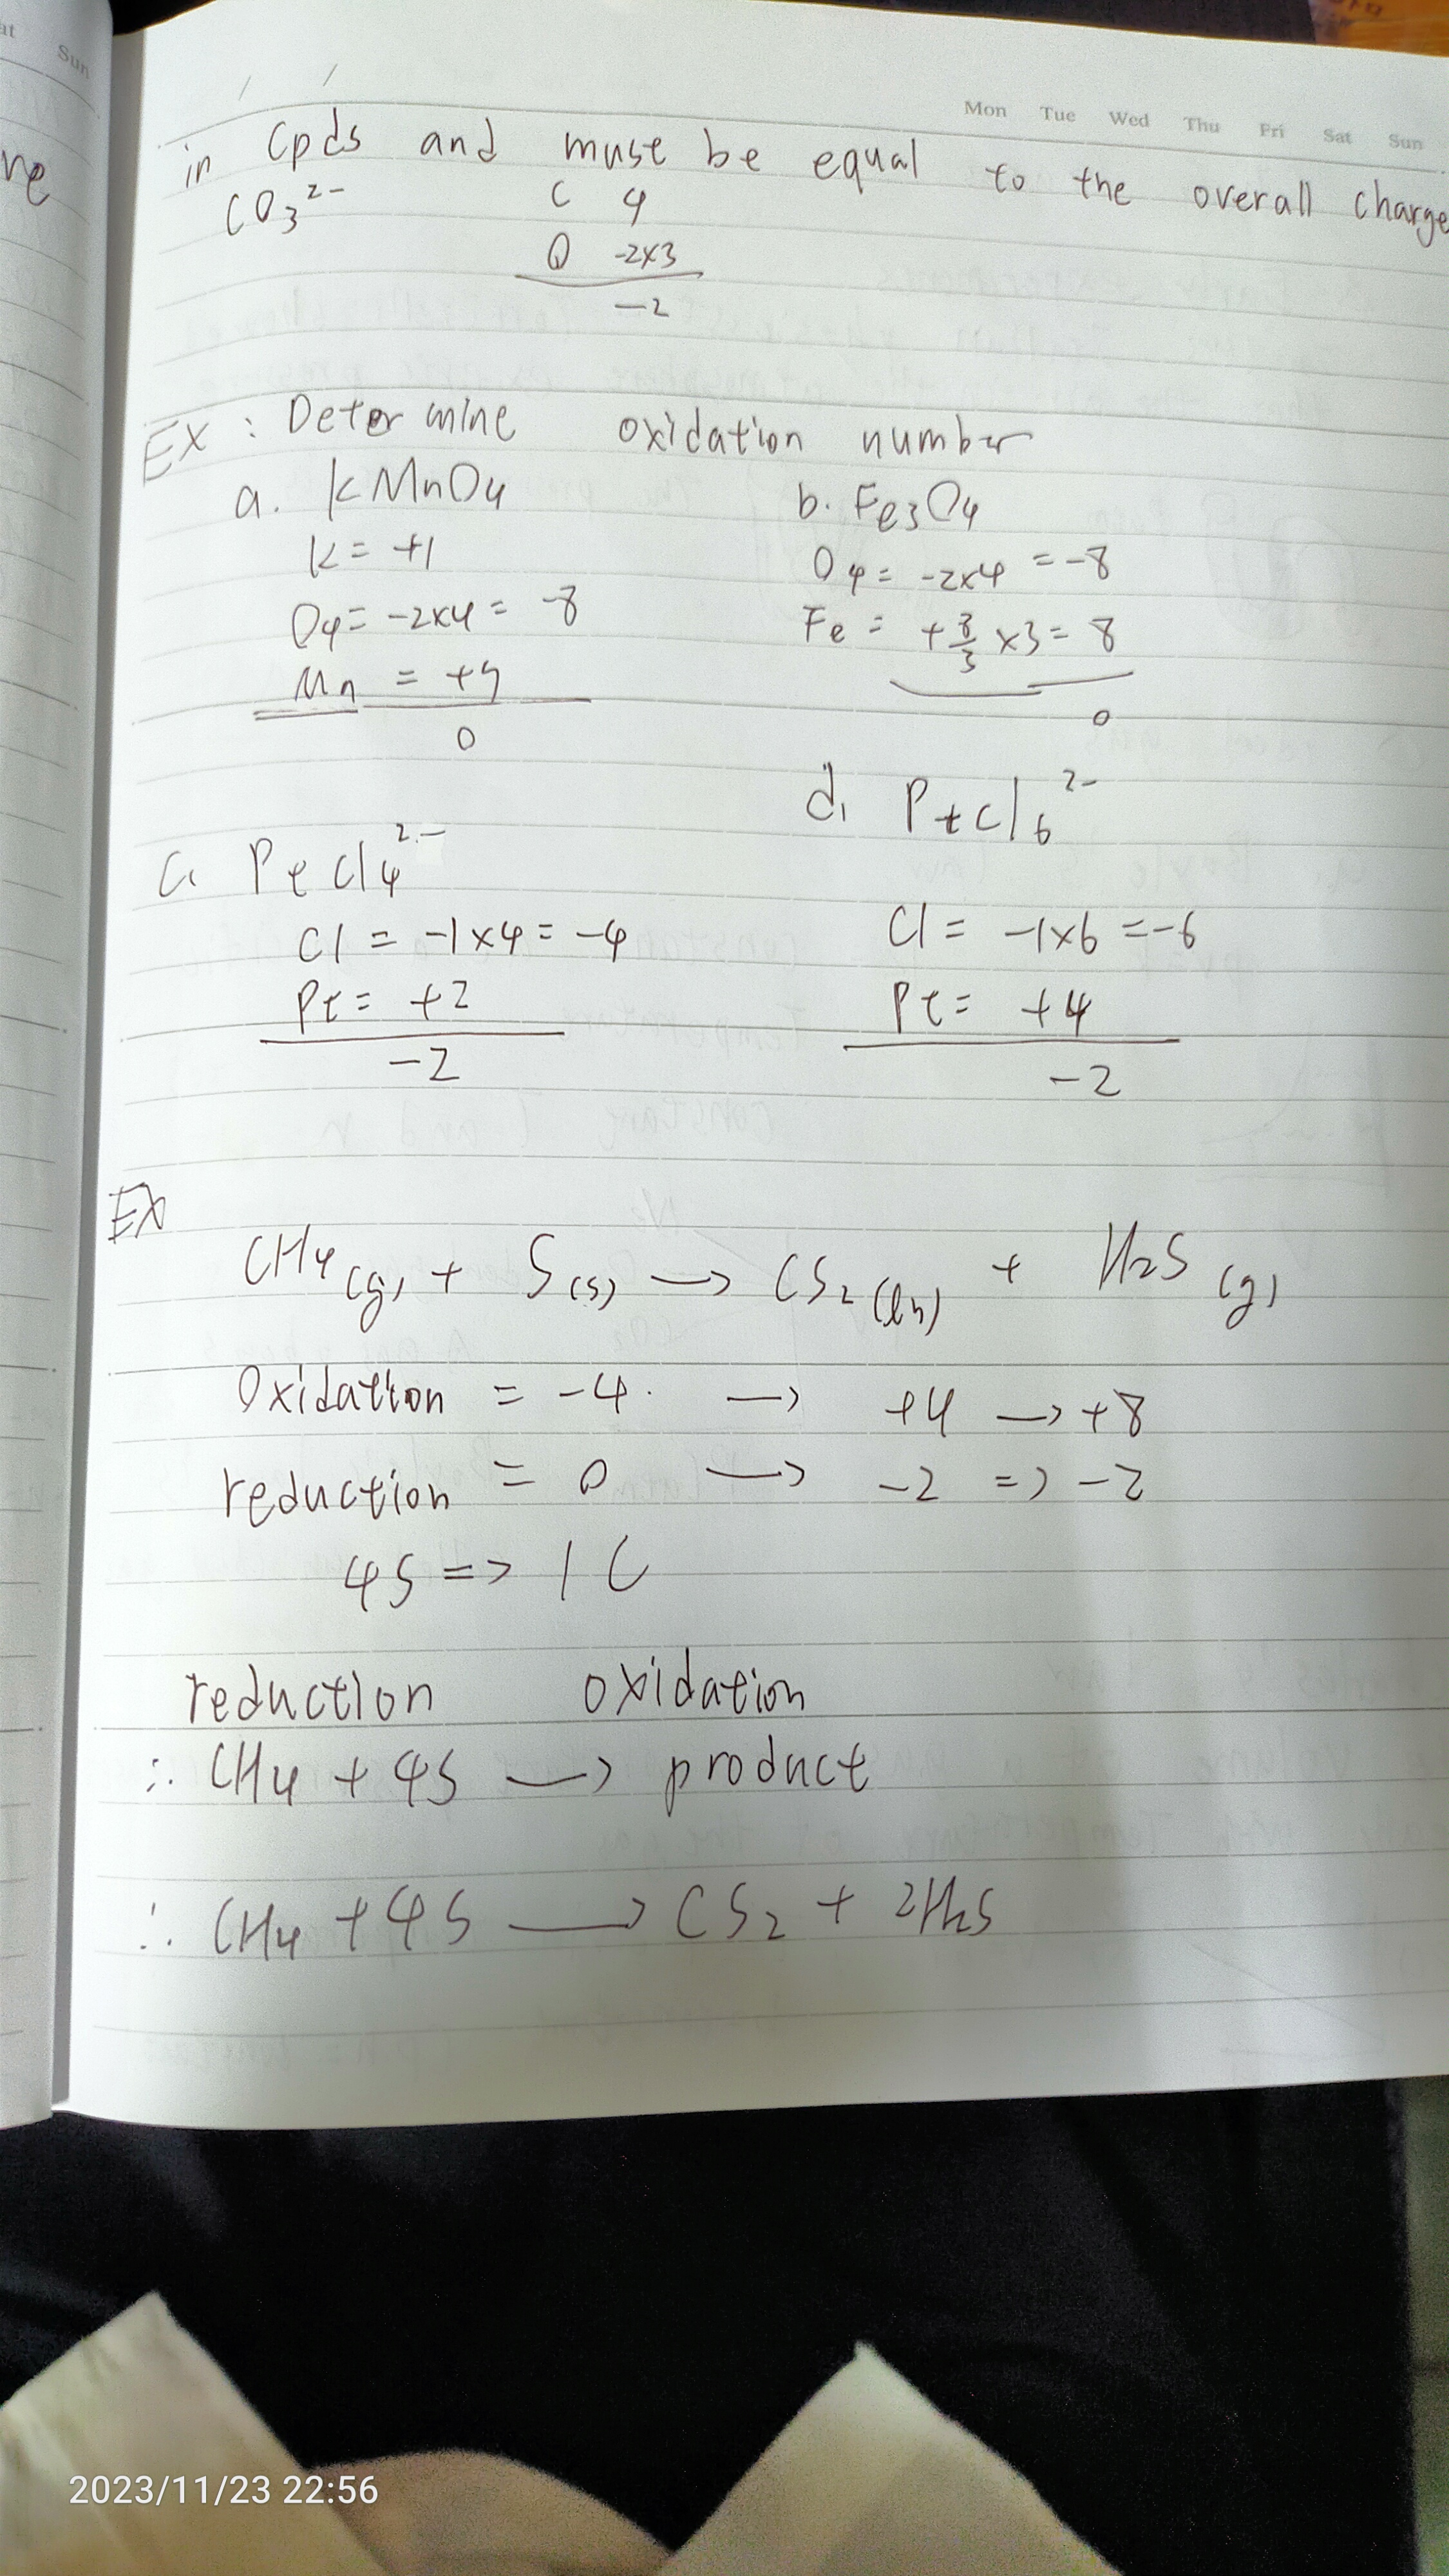 at Sun
ne
Mon Tue Wed Thu Fri Sat Sun
/ /
in Cpds and muse be equal to the overall charge
CO₃²⁻ C 4
O -2×3
-2
EX : Determine oxidation number
a. KMnO₄ b. Fe₃O₄
K = +1 O₄ = -2×4 = -8
O₄ = -2×4 = -8 Fe = +8/3 ×3 = 8
Mn = +7 0
0
c. PtCl₄²⁻ d. PtCl₆²⁻
Cl = -1×4 = -4 Cl = -1×6 = -6
Pt = +2 Pt = +4
-2 -2
EX
CH₄(g) + S(s) → CS₂(l) + H₂S (g)
Oxidation = -4 → +4 → +8
reduction = 0 → -2 => -2
4S => 1C
reduction oxidation
∴ CH₄ + 4S → product
∴ CH₄ + 4S → CS₂ + 2H₂S
2023/11/23 22:56